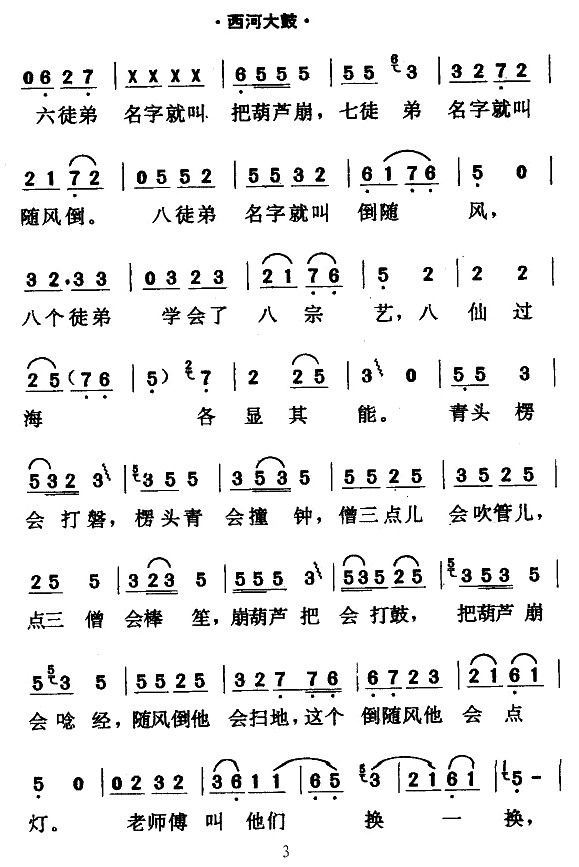 ·西河大鼓·
0627 | XXXX | 65555 | 55 6 3 | 3272 |
六徒弟 名字就叫 把葫芦崩，七徒 弟 名字就叫
2172 | 0552 | 5532 | 6176 | 5 0 |
随风倒。 八徒弟 名字就叫 倒随 风，
32·33 | 0323 | 2176 | 5 2 | 2 2 |
八个徒弟 学会了 八宗 艺，八 仙过
25（76 | 5）2 7 | 2 25 | 3 0 | 55 3 |
海 各 显其 能。 青头 楞
532 3 | 5 355 | 3535 | 5525 | 3525 |
会 打磐，楞头青 会撞 钟，僧三点儿 会吹管儿，
25 5 | 323 5 | 5555 3 | 53525 | 5 3535 |
点三 僧 会棒 笙，崩葫芦 把 会 打鼓， 把葫芦 崩
5 5 3 5 | 5525 | 327 76 | 6722 | 2161 |
会 唸 经，随风倒他 会扫地，这个 倒随风他 会 点
5 0 | 0232 | 3611 | 65 5 3 | 2161 | 1 5 - |
灯。 老师傅 叫 他们 换 一 换，
3